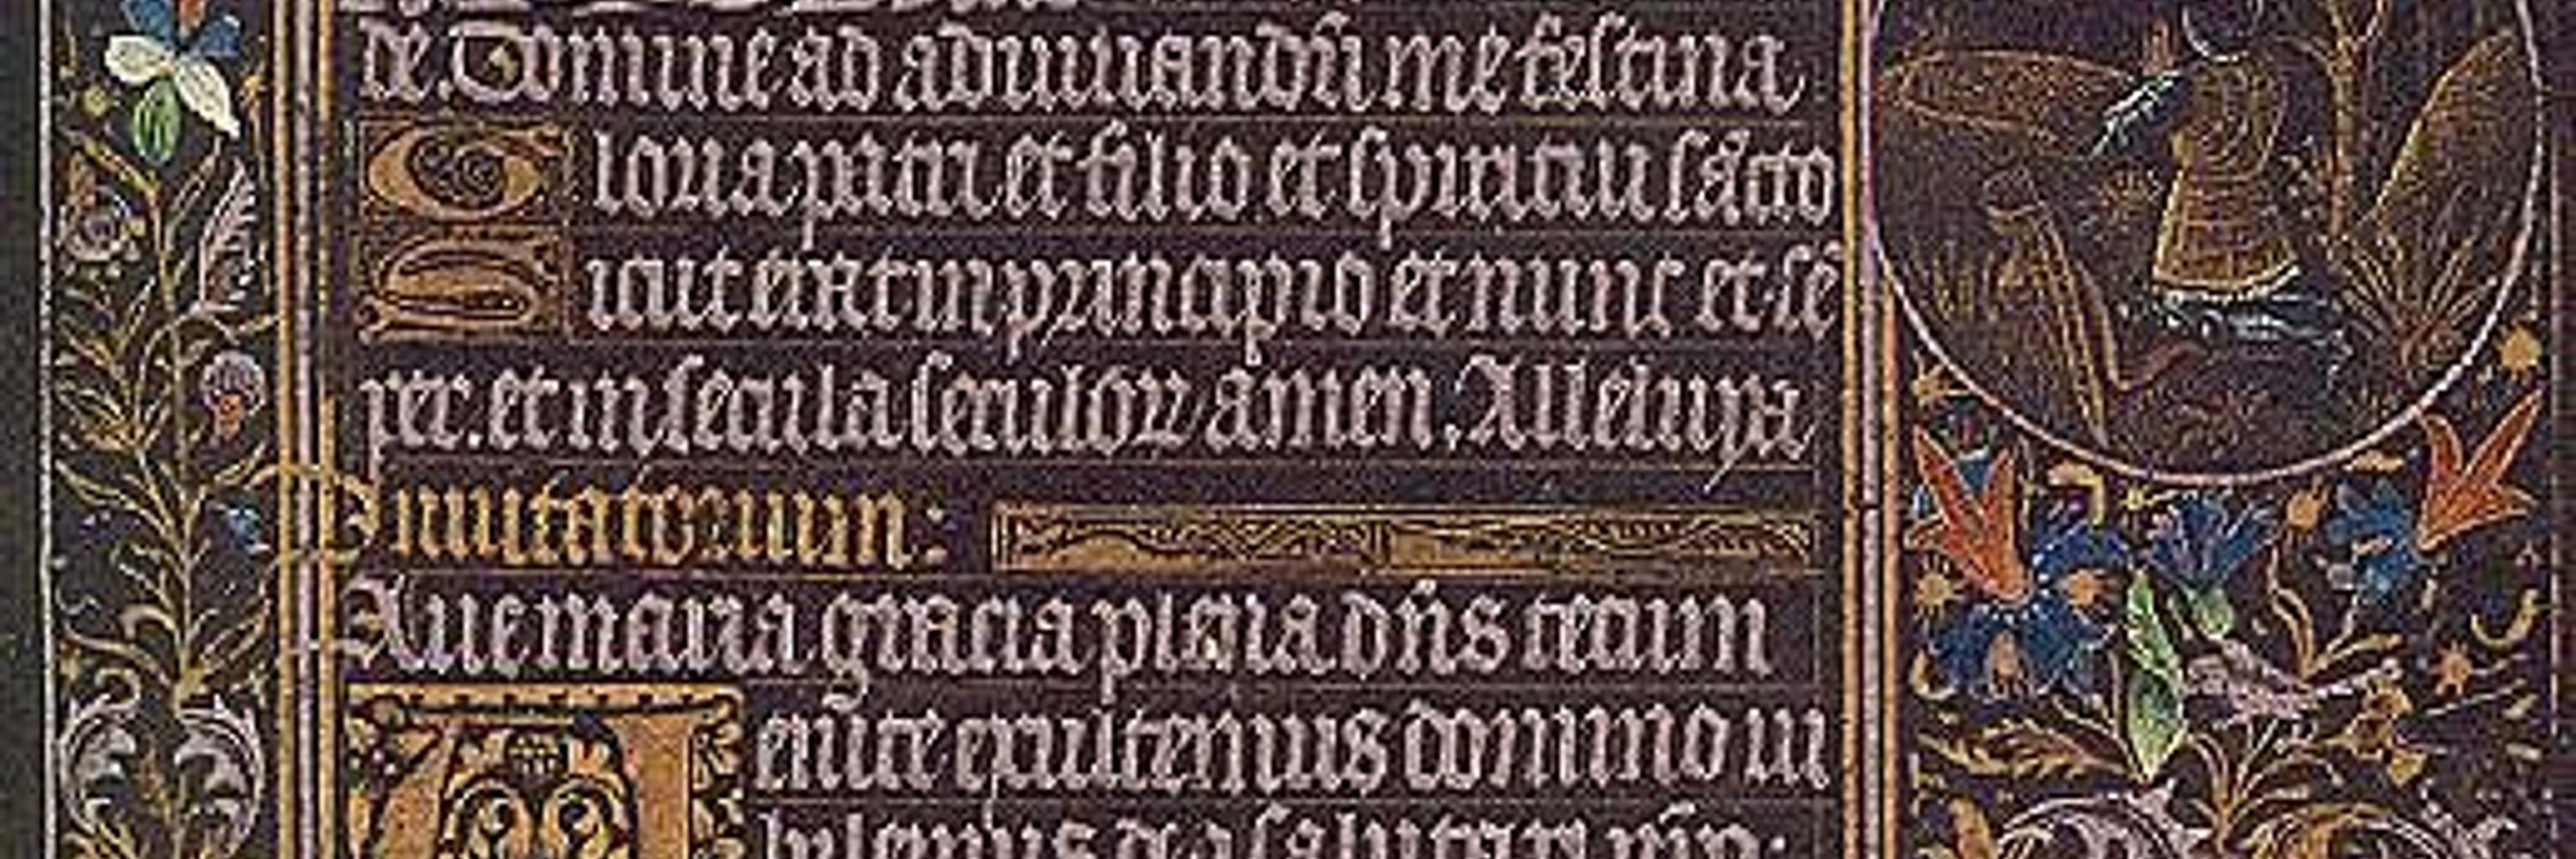 de. Domine ad adiuuandū me festina
Gloria patri et filio et spiritui sācto
Sicut erat in principio et nunc et sē
per. et in secula seculoꝝ amen. Alleluya
Inuitatorium:
Aue maria gracia plena dn̄s tecum
Uenite exultemus domino iu
bilemus deo salutari